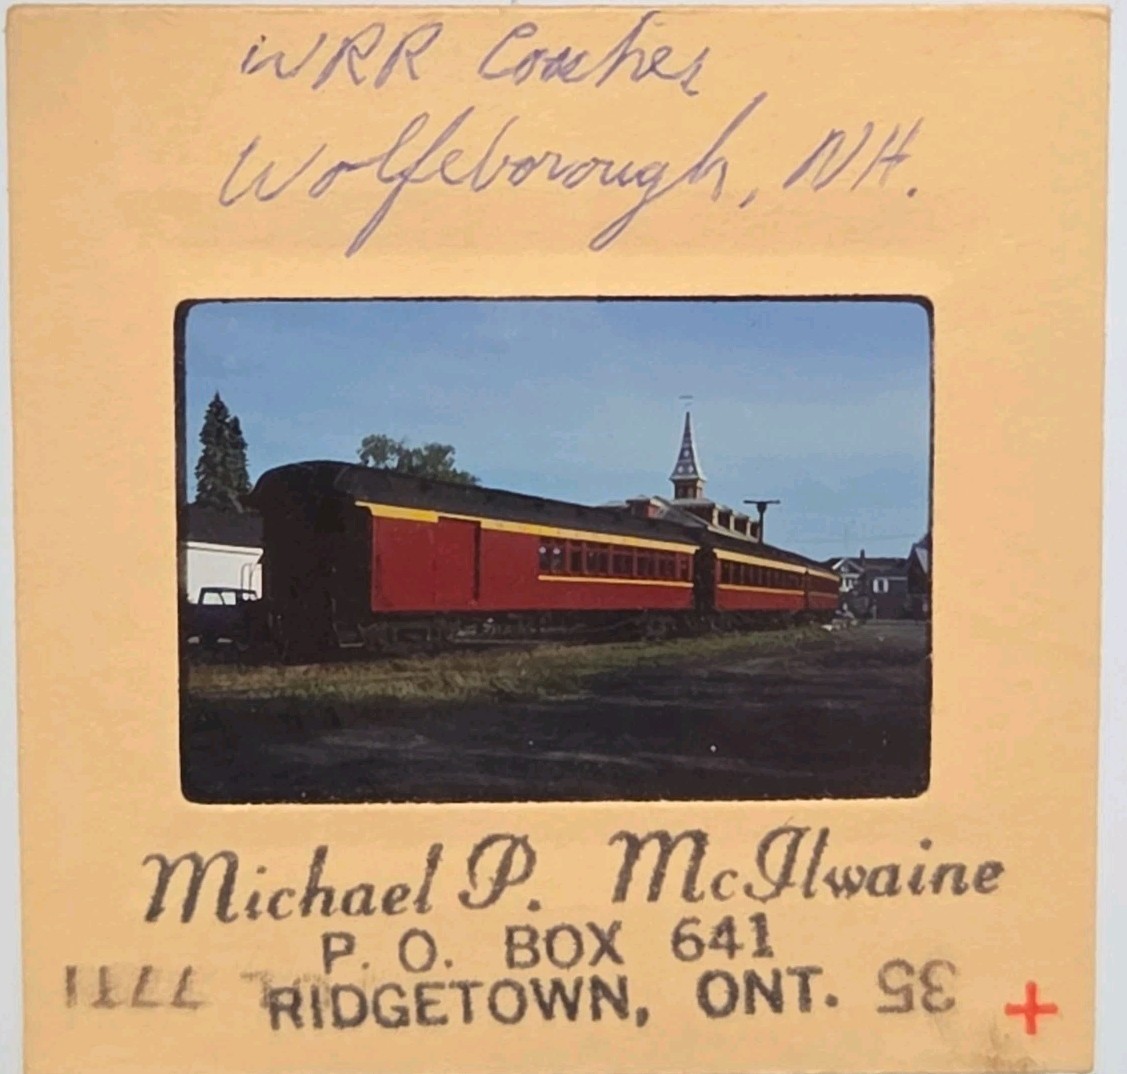 WRR Coaches
Wolfeborough, NH.
Michael P. McIlwaine
P. O. BOX 641
RIDGETOWN, ONT.
35
+